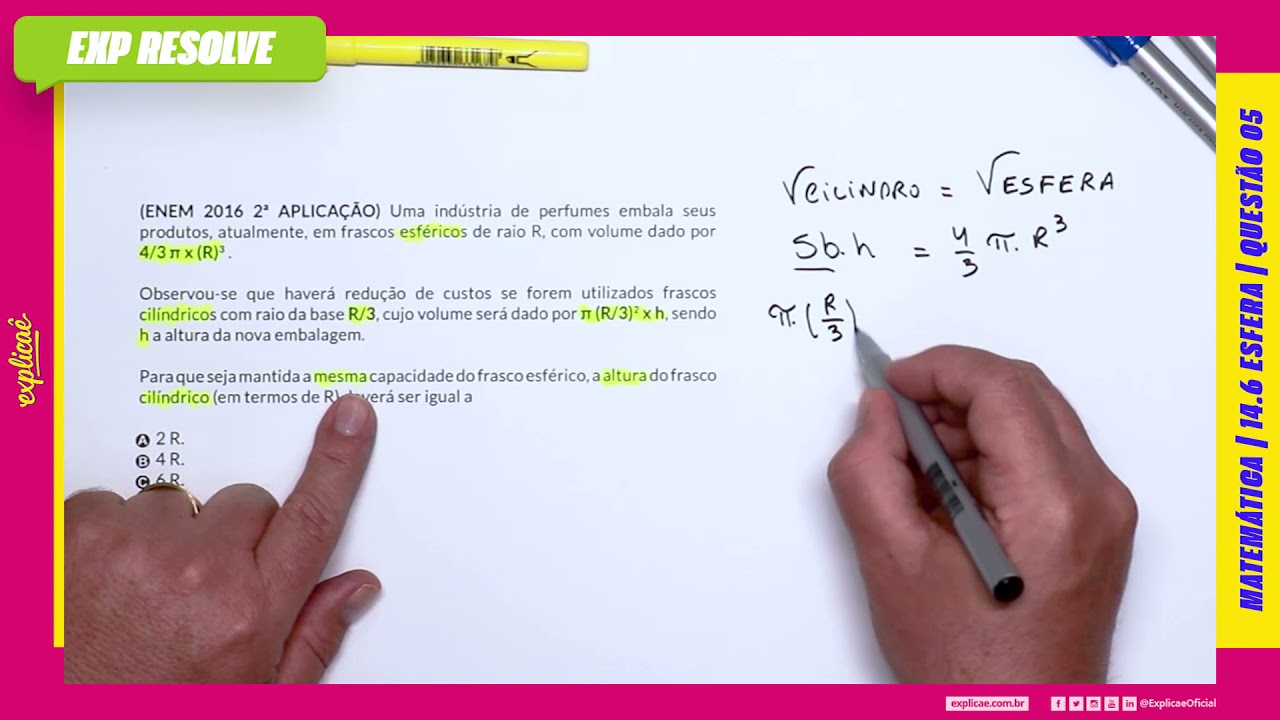 EXP RESOLVE
(ENEM 2016 2ª APLICAÇÃO) Uma indústria de perfumes embala seus
produtos, atualmente, em frascos esféricos de raio R, com volume dado por
4/3 π x (R)³ .
Observou-se que haverá redução de custos se forem utilizados frascos
cilíndricos com raio da base R/3, cujo volume será dado por π (R/3)² x h, sendo
h a altura da nova embalagem.
Para que seja mantida a mesma capacidade do frasco esférico, a altura do frasco
cilíndrico (em termos de R) deverá ser igual a
A 2 R.
B 4 R.
C 6 R.
VCILINDRO = VESFERA
Sb.h = 4/3 π. R³
π. (R/3)
explicaê
MATEMÁTICA | 14.6 ESFERA | QUESTÃO 05
explicae.com.br
@ExplicaeOficial